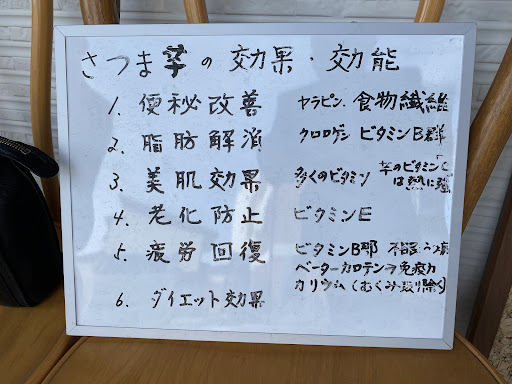 さつま芋の効果・効能
1. 便秘改善 ヤラピン. 食物繊維
2. 脂肪解消 クロロゲン ビタミンB群
3. 美肌効果 多くのビタミン 芋のビタミンC
は熱に強
4. 老化防止 ビタミンE
5. 疲労回復 ビタミンB郡
ベーターカロテン⇒免疫力
カリウム (むくみ取り除く)
6. ダイエット効果